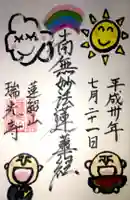 平成卅年
七月二十一日
南無妙法蓮華経
蓮山
瑞光寺